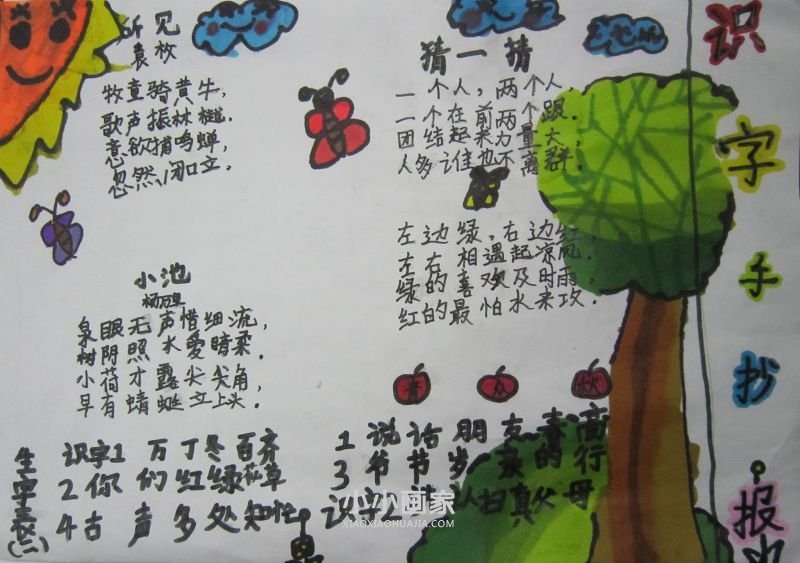 所见
袁枚
牧童骑黄牛,
歌声振林樾。
意欲捕鸣蝉,
忽然闭口立.
小池
杨万里
泉眼无声惜细流,
树阴照水爱晴柔.
小荷才露尖尖角,
早有蜻蜓立上头.
猜一猜
一个人,两个人,
一个在前两个跟.
团结起来力量大
人多谁也不离群.
左边绿,右边红,
左右相遇起凉风.
绿的喜欢及时雨,
红的最怕水来攻.
生字表(二)
识字1 万丁冬百齐
2你们红绿花草
4古声多处知忙
1说话朋友春高
3爷节岁亲的行
父母
识字手抄报
小小画家
XIAOXIAOHUAJIA.COM